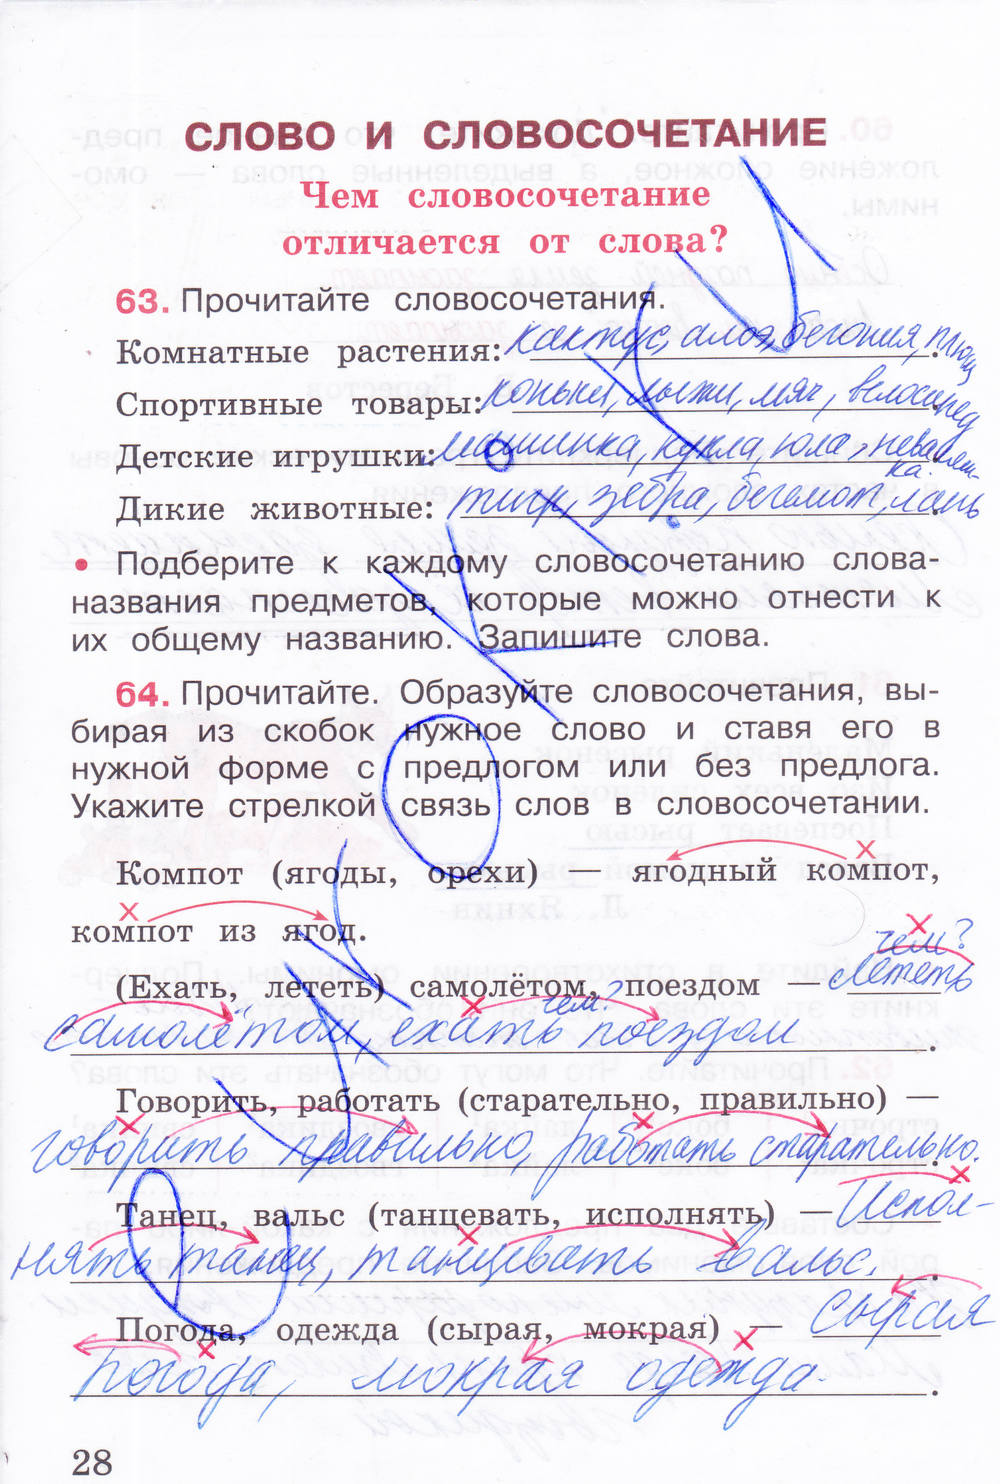 СЛОВО И СЛОВОСОЧЕТАНИЕ
Чем словосочетание
отличается от слова?
63. Прочитайте словосочетания.
Комнатные растения: кактус, алоэ, бегония, плющ.
Спортивные товары: коньки, лыжи, мяч, велосипед.
Детские игрушки: машинка, кукла, юла, неваляш-
ка.
Дикие животные: тигр, зебра, бегемот, лань.
• Подберите к каждому словосочетанию слова-
названия предметов, которые можно отнести к
их общему названию. Запишите слова.
64. Прочитайте. Образуйте словосочетания, вы-
бирая из скобок нужное слово и ставя его в
нужной форме с предлогом или без предлога.
Укажите стрелкой связь слов в словосочетании.
Компот (ягоды, орехи) — ягодный компот,
компот из ягод.
чем?
(Ехать, лететь) самолётом, поездом — лететь
чем?
самолётом, ехать поездом.
Говорить, работать (старательно, правильно) —
говорить правильно, работать старательно.
Танец, вальс (танцевать, исполнять) — Испол-
нять танец, танцевать вальс.
Погода, одежда (сырая, мокрая) — сырая
погода, мокрая одежда.
28